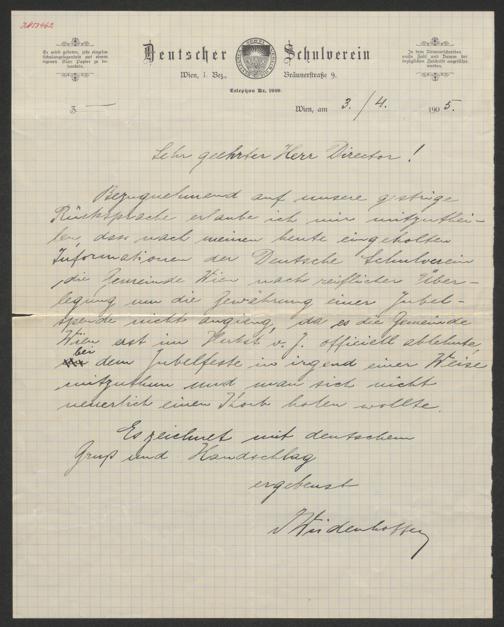 Es wird gebeten, jede einzelne
Schulangelegenheit auf einem
eigenen Blatt Papier zu be-
handeln.
Deutscher Schulverein
Wien, I. Bez., Bräunerstraße 9.
In dem Antwortschreiben
wolle Zahl und Datum der
bezüglichen Zuschrift angeführt
werden.
Z. —
Wien, am 3./4. 1905.
Sehr geehrter Herr Director!
Bezugnehmend auf unsere gestrige
Rücksprache erlaube ich mir mitzuthei-
len, dass nach meinen heute eingeholten
Informationen der Deutsche Schulverein
die Gemeinde Wien nach reiflicher Über-
legung um die Gewährung einer Jubel-
spende nicht angieng, da es die Gemeinde
Wien erst im Herbst v. J. officiell ablehnte,
bei
dem Jubelfeste in irgend einer Weise
mitzuthun und man sich nicht
neuerlich einen Korb holen wollte.
Es zeichnet mit deutschem
Gruß und Handschlag
ergebenst